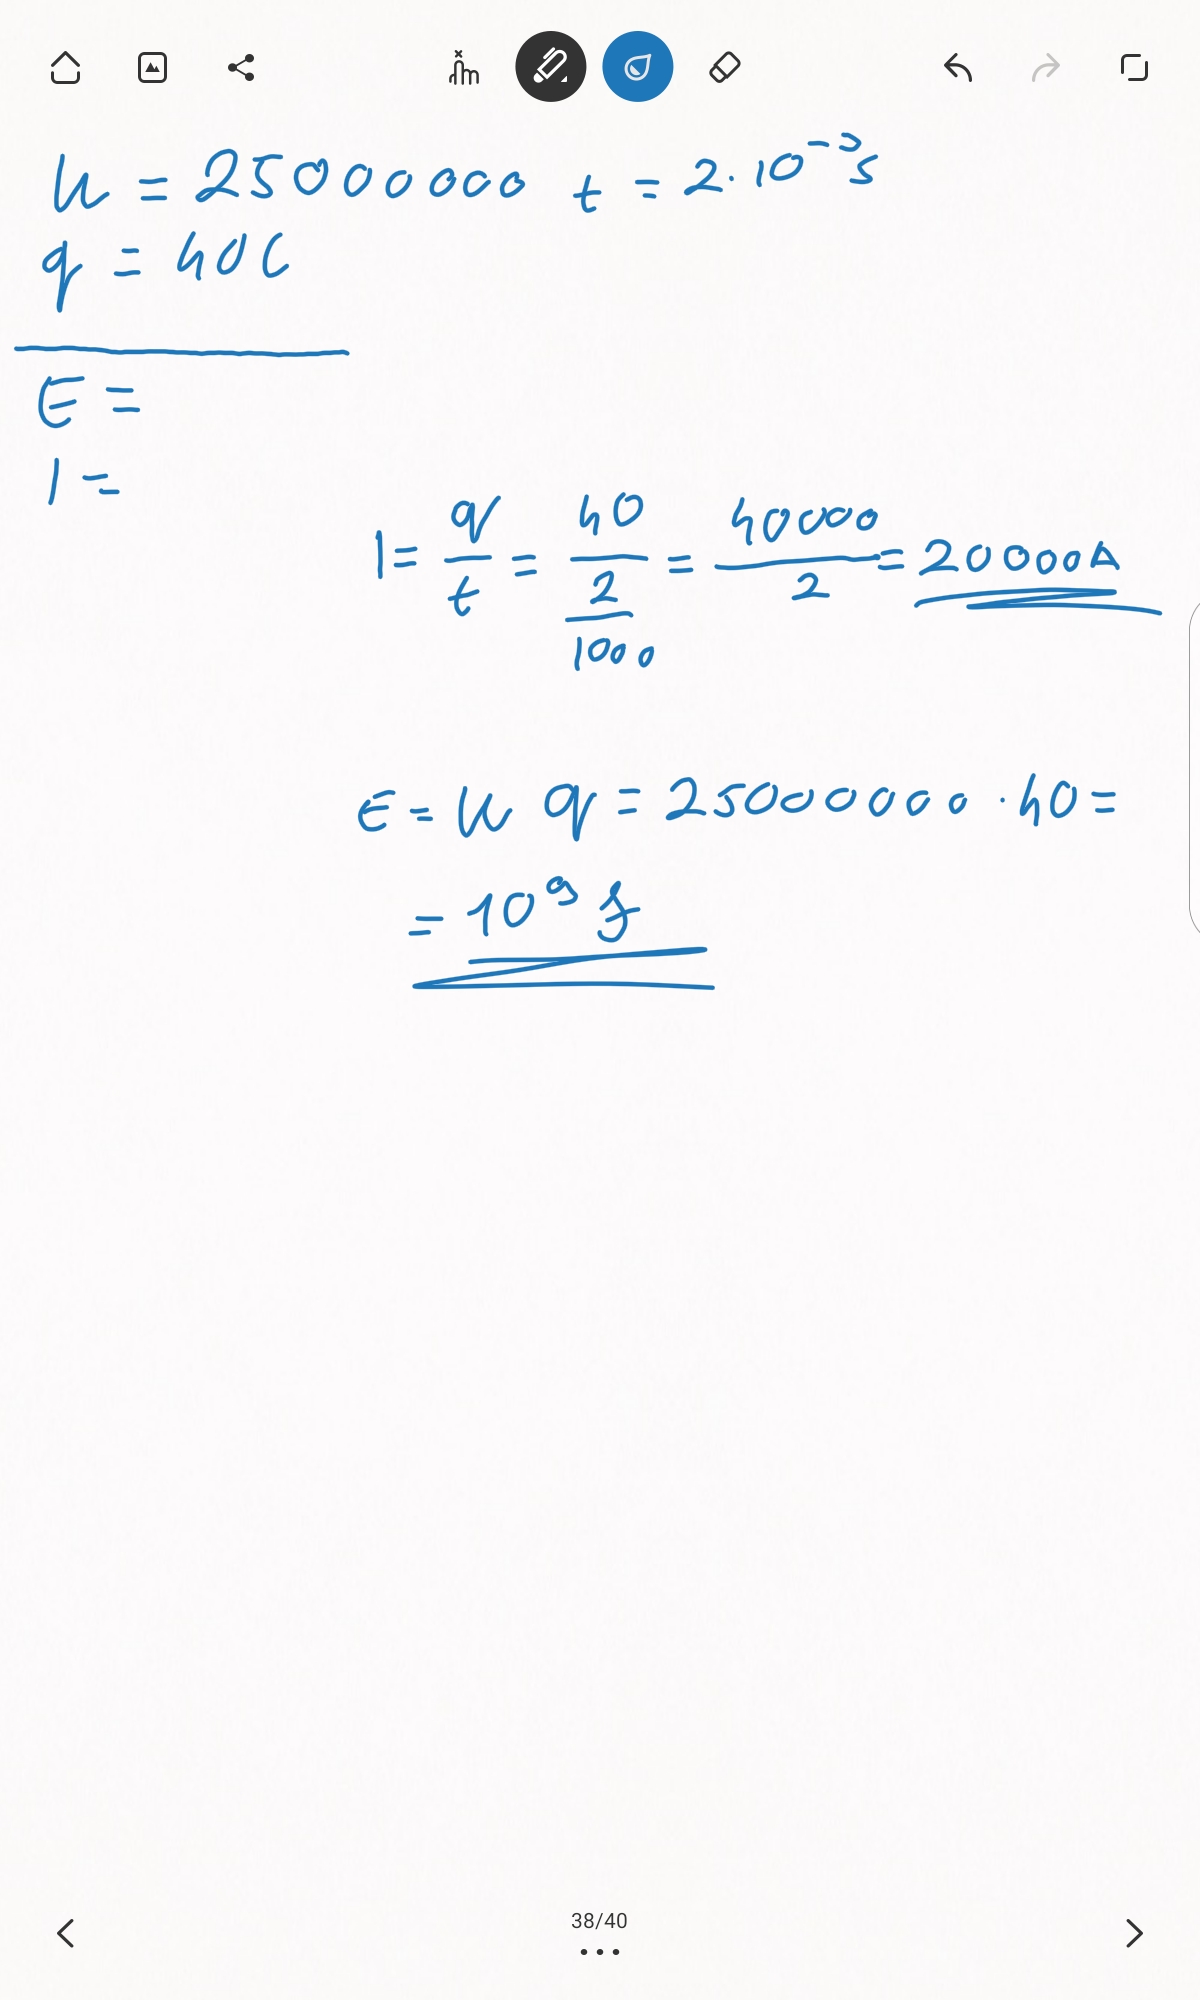 U = 25000000 t = 2·10⁻³s
q = 40C
E =
I =
I = q/t = 40/(2/1000) = 40000/2 = 20000A
E = U q = 25000000 · 40 =
= 10⁹ J
38/40